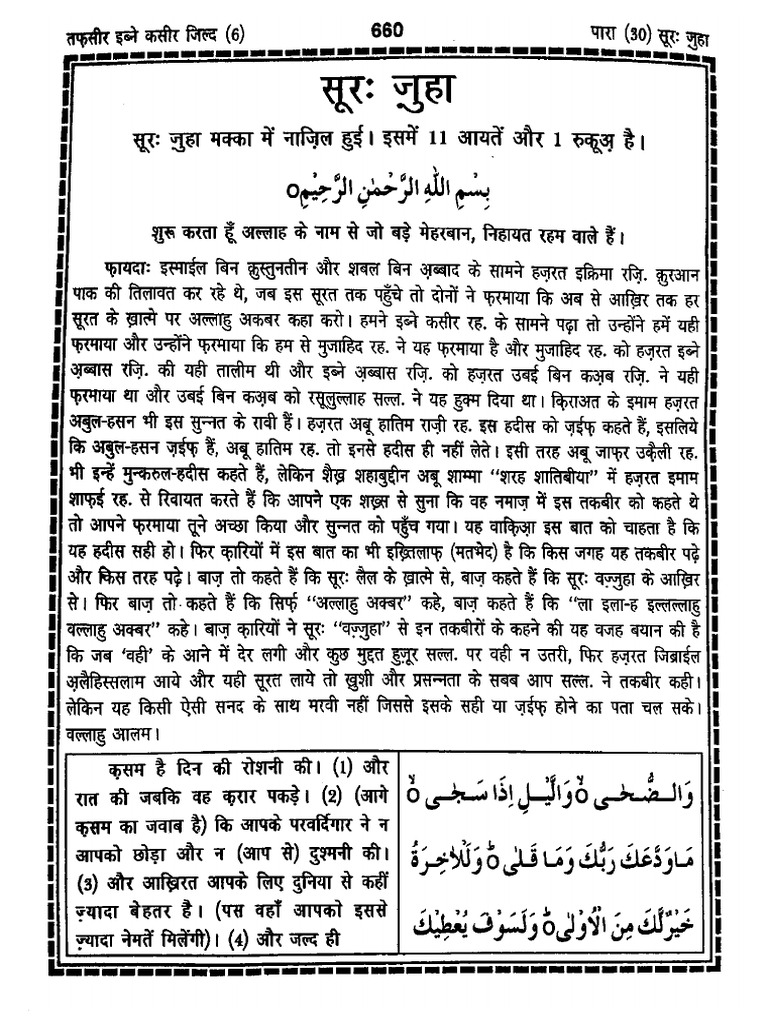 तफ़सीर इब्ने कसीर जिल्द (6)
660
पारा (30) सूरः जुहा
सूरः जुहा
सूरः जुहा मक्का में नाज़िल हुई। इसमें 11 आयतें और 1 रुकूअ़ है।
بِسْمِ اللهِ الرَّحْمٰنِ الرَّحِيْمِ○
शुरू करता हूँ अल्लाह के नाम से जो बड़े मेहरबान, निहायत रहम वाले हैं।
फ़ायदाः इस्माईल बिन क़ुस्तुनतीन और शबल बिन अ़ब्बाद के सामने हज़रत इक्रिमा रज़ि. क़ुरआन
पाक की तिलावत कर रहे थे, जब इस सूरत तक पहुँचे तो दोनों ने फ़रमाया कि अब से आख़िर तक हर
सूरत के ख़ात्मे पर अल्लाहु अकबर कहा करो। हमने इब्ने कसीर रह. के सामने पढ़ा तो उन्होंने हमें यही
फ़रमाया और उन्होंने फ़रमाया कि हम से मुजाहिद रह. ने यह फ़रमाया है और मुजाहिद रह. को हज़रत इब्ने
अ़ब्बास रज़ि. की यही तालीम थी और इब्ने अ़ब्बास रज़ि. को हज़रत उबई बिन कअ़ब रज़ि. ने यही
फ़रमाया था और उबई बिन कअ़ब को रसूलुल्लाह सल्ल. ने यह हुक्म दिया था। क़िराअत के इमाम हज़रत
अबुल-हसन भी इस सुन्नत के रावी हैं। हज़रत अबू हातिम राज़ी रह. इस हदीस को ज़ईफ़ कहते हैं, इसलिये
कि अबुल-हसन ज़ईफ़ हैं, अबू हातिम रह. तो इनसे हदीस ही नहीं लेते। इसी तरह अबू जाफ़र उक़ैली रह.
भी इन्हें मुन्करुल-हदीस कहते हैं, लेकिन शैख़ शहाबुद्दीन अबू शाम्मा “शरह शातिबीया” में हज़रत इमाम
शाफ़ई रह. से रिवायत करते हैं कि आपने एक शख़्स से सुना कि वह नमाज़ में इस तकबीर को कहते थे
तो आपने फ़रमाया तूने अच्छा किया और सुन्नत को पहुँच गया। यह वाक़िआ़ इस बात को चाहता है कि
यह हदीस सही हो। फिर क़ारियों में इस बात का भी इख़्तिलाफ़ (मतभेद) है कि किस जगह यह तकबीर पढ़े
और किस तरह पढ़े। बाज़ तो कहते हैं कि सूरः लैल के ख़ात्मे से, बाज़ कहते हैं कि सूरः वज़्ज़ुहा के आख़िर
से। फिर बाज़ तो कहते हैं कि सिर्फ़ “अल्लाहु अक्बर” कहे, बाज़ कहते हैं कि “ला इला-ह इल्लल्लाहु
वल्लाहु अक्बर” कहे। बाज़ क़ारियों ने सूरः “वज़्ज़ुहा” से इन तकबीरों के कहने की यह वजह बयान की है
कि जब ‘वही’ के आने में देर लगी और कुछ मुद्दत हुज़ूर सल्ल. पर वही न उतरी, फिर हज़रत जिब्राईल
अ़लैहिस्सलाम आये और यही सूरत लाये तो ख़ुशी और प्रसन्नता के सबब आप सल्ल. ने तकबीर कही।
लेकिन यह किसी ऐसी सनद के साथ मरवी नहीं जिससे इसके सही या ज़ईफ़ होने का पता चल सके।
वल्लाहु आलम।
क़सम है दिन की रोशनी की। (1) और
रात की जबकि वह क़रार पकड़े। (2) (आगे
क़सम का जवाब है) कि आपके परवर्दिगार ने न
आपको छोड़ा और न (आप से) दुश्मनी की।
(3) और आख़िरत आपके लिए दुनिया से कहीं
ज़्यादा बेहतर है। (पस वहाँ आपको इससे
ज़्यादा नेमतें मिलेंगी)। (4) और जल्द ही
وَالضُّحٰى ۙ○ وَالَّيْلِ اِذَا سَجٰى ۙ○
مَاوَدَّعَكَ رَبُّكَ وَمَا قَلٰى ○ؕ وَلَلْاٰخِرَةُ
خَيْرٌلَّكَ مِنَ الْاُوْلٰى ○ؕ وَلَسَوْفَ يُعْطِيْكَ